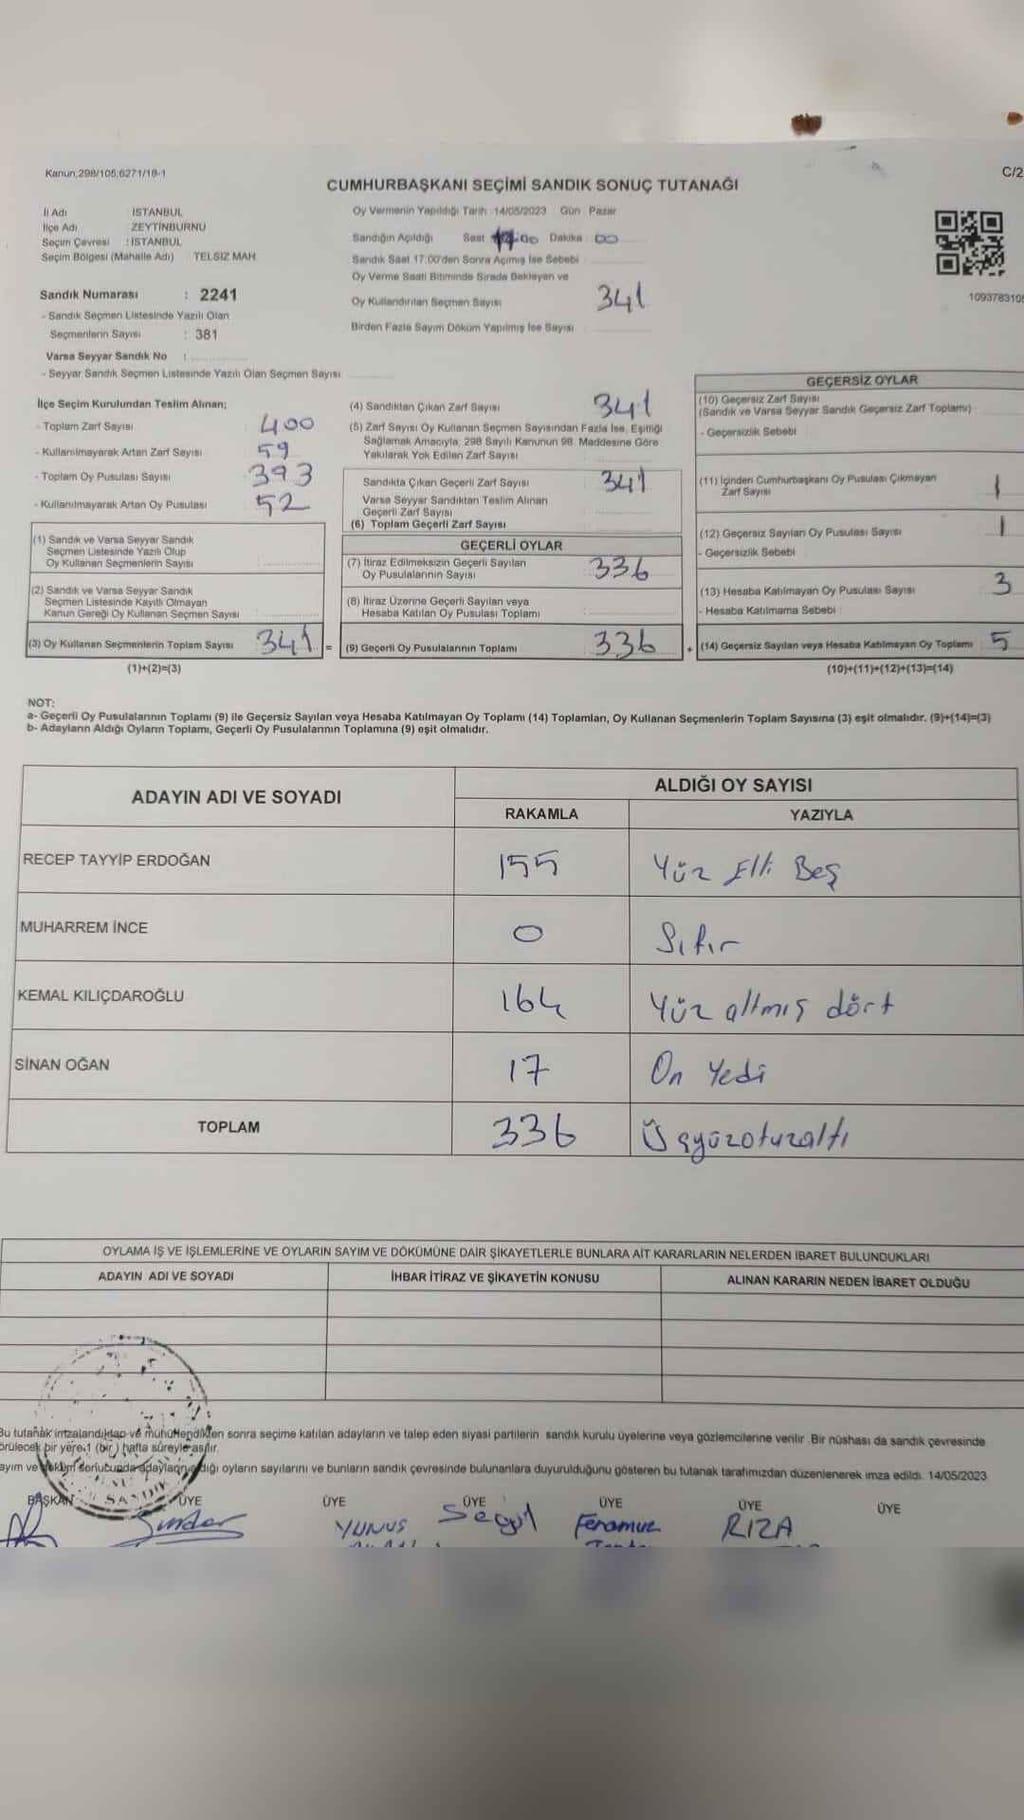 Kanun,298/105,6271/18-1
C/2
CUMHURBAŞKANI SEÇİMİ SANDIK SONUÇ TUTANAĞI
İl Adı İSTANBUL
İlçe Adı ZEYTİNBURNU
Seçim Çevresi : İSTANBUL
Seçim Bölgesi (Mahalle Adı) TELSİZ MAH.
Sandık Numarası : 2241
- Sandık Seçmen Listesinde Yazılı Olan
Seçmenlerin Sayısı : 381
Varsa Seyyar Sandık No :
- Seyyar Sandık Seçmen Listesinde Yazılı Olan Seçmen Sayısı
Oy Vermenin Yapıldığı Tarih :14/05/2023 Gün Pazar
Sandığın Açıldığı Saat Dakika 00
Sandık Saat 17:00'den Sonra Açımış İse Sebebi
Oy Verme Saati Bitiminde Sırada Bekleyen ve
Oy Kullandırılan Seçmen Sayısı 341
Birden Fazla Sayım Döküm Yapılmış İse Sayısı
1093783105
İlçe Seçim Kurulundan Teslim Alınan;
- Toplam Zarf Sayısı 400
- Kullanılmayarak Artan Zarf Sayısı 59
- Toplam Oy Pusulası Sayısı 393
- Kullanılmayarak Artan Oy Pusulası 52
(1) Sandık ve Varsa Seyyar Sandık
Seçmen Listesinde Yazılı Olup
Oy Kullanan Seçmenlerin Sayısı
(2) Sandık ve Varsa Seyyar Sandık
Seçmen Listesinde Kayıtlı Olmayan
Kanun Gereği Oy Kullanan Seçmen Sayısı
(3) Oy Kullanan Seçmenlerin Toplam Sayısı 341 =
(1)+(2)=(3)
(4) Sandıktan Çıkan Zarf Sayısı 341
(5) Zarf Sayısı Oy Kullanan Seçmen Sayısından Fazla İse, Eşitliği
Sağlamak Amacıyla, 298 Sayılı Kanunun 98. Maddesine Göre
Yakılarak Yok Edilen Zarf Sayısı
Sandıkta Çıkan Geçerli Zarf Sayısı 341
Varsa Seyyar Sandıktan Teslim Alınan
Geçerli Zarf Sayısı
(6) Toplam Geçerli Zarf Sayısı
GEÇERLİ OYLAR
(7) İtiraz Edilmeksizin Geçerli Sayılan
Oy Pusulalarının Sayısı 336
(8) İtiraz Üzerine Geçerli Sayılan veya
Hesaba Katılan Oy Pusulası Toplamı
(9) Geçerli Oy Pusulalarının Toplamı 336 +
GEÇERSİZ OYLAR
(10) Geçersiz Zarf Sayısı
(Sandık ve Varsa Seyyar Sandık Geçersiz Zarf Toplamı)
- Geçersizlik Sebebi
(11) İçinden Cumhurbaşkanı Oy Pusulası Çıkmayan
Zarf Sayısı 1
(12) Geçersiz Sayılan Oy Pusulası Sayısı 1
- Geçersizlik Sebebi
(13) Hesaba Katılmayan Oy Pusulası Sayısı 3
- Hesaba Katılmama Sebebi :
(14) Geçersiz Sayılan veya Hesaba Katılmayan Oy Toplamı 5
(10)+(11)+(12)+(13)=(14)
NOT:
a- Geçerli Oy Pusulalarının Toplamı (9) ile Geçersiz Sayılan veya Hesaba Katılmayan Oy Toplamı (14) Toplamları, Oy Kullanan Seçmenlerin Toplam Sayısına (3) eşit olmalıdır. (9)+(14)=(3)
b- Adayların Aldığı Oyların Toplamı, Geçerli Oy Pusulalarının Toplamına (9) eşit olmalıdır.
ADAYIN ADI VE SOYADI ALDIĞI OY SAYISI
RAKAMLA YAZIYLA
RECEP TAYYİP ERDOĞAN 155 Yüz Elli Beş
MUHARREM İNCE 0 Sıfır
KEMAL KILIÇDAROĞLU 164 Yüz altmış dört
SİNAN OĞAN 17 On Yedi
TOPLAM 336 Üçyüzotuzaltı
OYLAMA İŞ VE İŞLEMLERİNE VE OYLARIN SAYIM VE DÖKÜMÜNE DAİR ŞİKAYETLERLE BUNLARA AİT KARARLARIN NELERDEN İBARET BULUNDUKLARI
ADAYIN ADI VE SOYADI İHBAR İTİRAZ VE ŞİKAYETİN KONUSU ALINAN KARARIN NEDEN İBARET OLDUĞU
Bu tutanak imzalandıktan ve mühürlendikten sonra seçime katılan adayların ve talep eden siyasi partilerin sandık kurulu üyelerine veya gözlemcilerine verilir. Bir nüshası da sandık çevresinde
örülecek bir yere 1 (bir) hafta süreyle asılır.
ayım ve döküm sonucunda adayların aldığı oyların sayılarını ve bunların sandık çevresinde bulunanlara duyurulduğunu gösteren bu tutanak tarafımızdan düzenlenerek imza edildi. 14/05/2023
BAŞKAN ÜYE ÜYE ÜYE ÜYE ÜYE ÜYE
SANDIK
YUNUS Feramuz RIZA